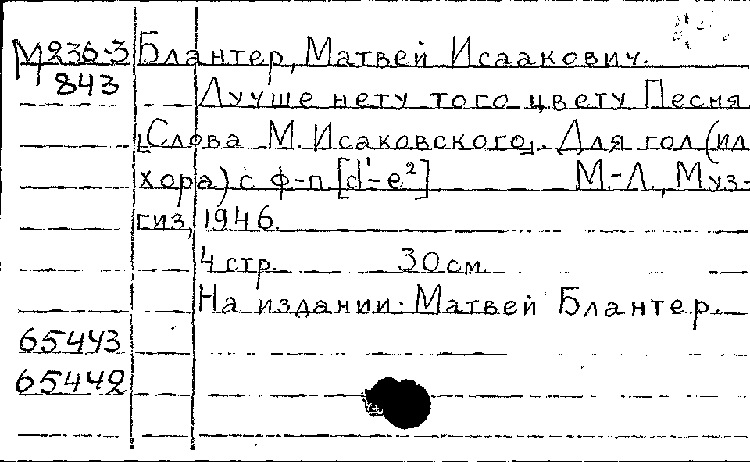 М236-3 Блантер, Матвей Исаакович.
843
Лучше нету того цвету Песня
[Слова М. Исаковского]. Для гол (ил
хора) с ф-п [d¹-e²] М-Л, Муз-
гиз, 1946.
4 стр. 30 см.
На издании: Матвей Блантер.
65443
65442